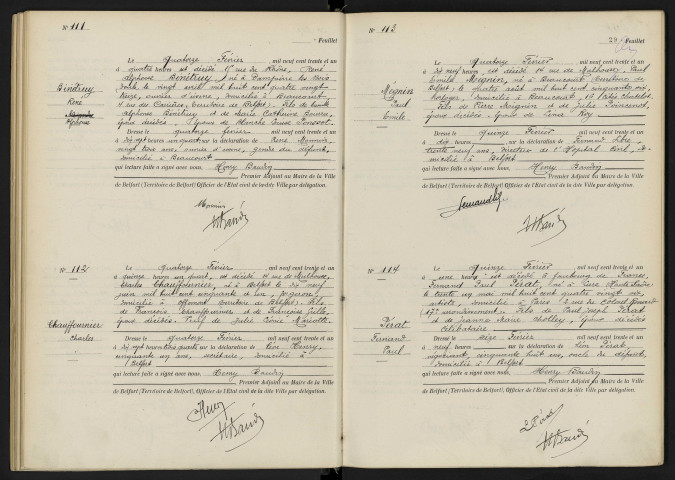 N° 111
Feuillet
Bénétruy
René
Alphonse
Le Quatorze Février mil neuf cent trente et un
à quatre heures est décédé rue de Rhône, Paul
Alphonse Bénétruy, né à Dampierre les Bois
Doubs le vingt avril mil huit cent quatre vingt
treize, ouvrier d'usine, domicilié à Beaucourt
rue des Carrières (territoire de Belfort). Fils de
Alphonse Bénétruy et de Marie Catherine
époux décédés. Epoux de Blanche
Dressé le quatorze février
à dix sept heures un quart sur la déclaration de René Monnier
vingt trois ans, ouvrier d'usine, gendre du défunt,
domicilié à Beaucourt
qui lecture faite a signé avec nous, Henry Baudry
Premier Adjoint au Maire de la Ville
de Belfort (Territoire de Belfort) Officier de l'Etat civil de ladite Ville par délégation.
Monnier
HBaudry
N° 112
Chauffournier
Charles
Le Quatorze Février mil neuf cent trente et un
à quinze heures un quart, est décédé 14 rue de Mulhouse,
Charles Chauffournier, né à Belfort le dix neuf
juin mil huit cent cinquante et un,
domicilié à Offemont (territoire de Belfort). Fils
de François Chauffournier et de Françoise
époux décédés. Veuf de Julie
Dressé le Quatorze Février
à dix sept heures trois quarts sur la déclaration de Léon Henry,
cinquante un ans, secrétaire, domicilié à
Belfort
qui lecture faite a signé avec nous, Henry Baudry
Premier Adjoint au Maire de la Ville
de Belfort (Territoire de Belfort) Officier de l'Etat civil de ladite Ville par délégation.
LHenry
HBaudry
N° 113
29 Feuillet
Mégnin
Paul
Emile
Le Quatorze Février mil neuf cent trente et un
à dix neuf heures, est décédé 14 rue de Mulhouse, Paul
Emile Mégnin, né à Beaucourt (territoire de
Belfort) le quatre août mil huit cent cinquante six,
horloger, domicilié à Beaucourt,
Fils de Pierre Mégnin et de Julie
époux décédés. Epoux de Lina Roy
Dressé le Quinze Février
à dix heures sur la déclaration de Fernand Libre,
trente neuf ans, Directeur de l'Hôpital Civil, do-
micilié à Belfort
qui lecture faite a signé avec nous, Henry Baudry
Premier Adjoint au Maire de la Ville
de Belfort (Territoire de Belfort) Officier de l'Etat civil de la dite Ville par délégation.
HBaudry
N° 114
Férat
Fernand
Paul
Le Quinze Février mil neuf cent trente et un
à onze heures est décédé faubourg de France,
Fernand Paul Férat, né à Lure Haute Saône
le trente un mai mil huit cent quatre vingt six,
artiste, domicilié à Paris 2 rue du Colonel
(17e arrondissement). Fils de Paul Joseph Férat
et de Jeanne Marie Cholley, époux décédés
Célibataire
Dressé le seize Février
à neuf heures sur la déclaration de Léon Férat,
cinquante huit ans, oncle du défunt,
domicilié à Belfort
qui lecture faite a signé avec nous, Henry Baudry
Premier Adjoint au Maire de la Ville
de Belfort (Territoire de Belfort) Officier de l'Etat civil de la dite Ville par délégation.
LFérat
HBaudry